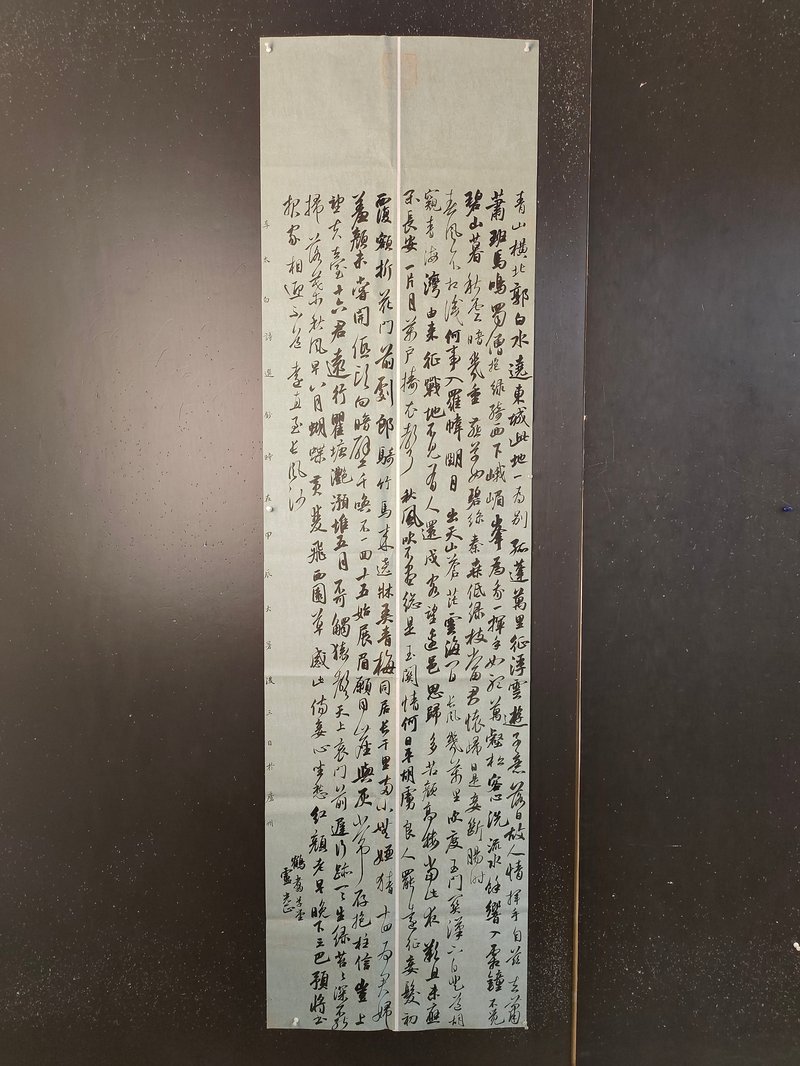 青山橫北郭白水遶東城此地一為別孤蓬萬里征浮雲遊子意落日故人情揮手自茲去蕭
蕭班馬鳴蜀僧抱綠綺西下峨嵋峯為我一揮手如聽萬壑松客心洗流水餘響入霜鐘不覺
碧山暮秋雲暗幾重燕草如碧絲秦桑低綠枝當君懷歸日是妾斷腸時
春風不相識何事入羅幃明月出天山蒼茫雲海間長風幾萬里吹度玉門關漢下白登道胡
窺青海灣由來征戰地不見有人還戍客望邊邑思歸多苦顏高樓當此夜歎息未應
閑長安一片月萬戶擣衣聲秋風吹不盡總是玉關情何日平胡虜良人罷遠征妾髮初
覆額折花門前劇郎騎竹馬來遶牀弄青梅同居長干里兩小無嫌猜十四為君婦
羞顏未嘗開低頭向暗壁千喚不一回十五始展眉願同塵與灰常存抱柱信豈上
望夫臺十六君遠行瞿塘灩澦堆五月不可觸猿聲天上哀門前遲行跡一一生綠苔苔深不能
掃落葉秋風早八月蝴蝶黃雙飛西園草感此傷妾心坐愁紅顏老早晚下三巴預將書
報家相迎不道遠直至長風沙
李太白詩選鈔時在甲辰大暑後三日於廬州